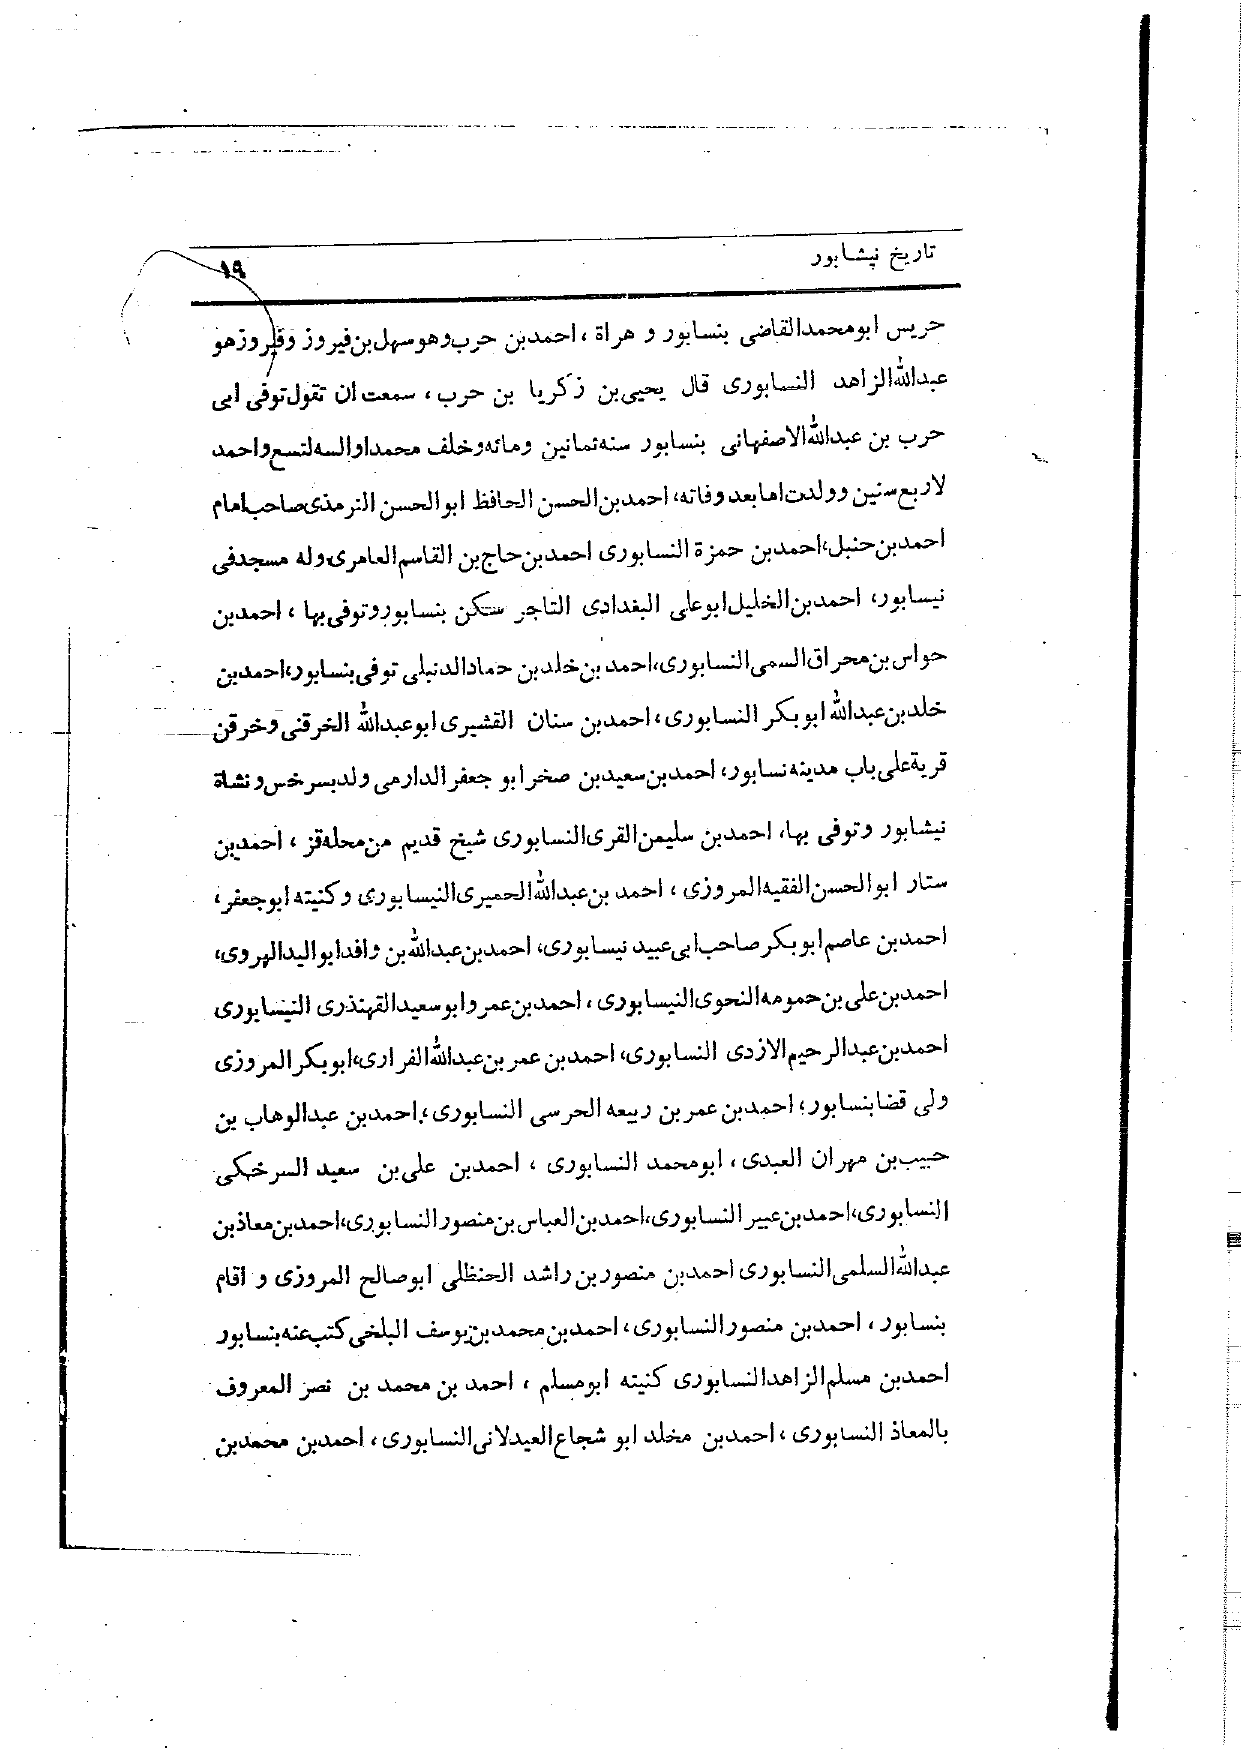 تاریخ نیشابور
۱۹
حریس ابومحمدالقاضی بنسابور و هراة ، احمدبن حرب وهوسهل بن فیروز وفیروزهو
عبداللهالزاهد النسابوری قال یحیی بن زکریا بن حرب ، سمعت ان تقول توفی ابی
حرب بن عبداللهالاصفهانی بنسابور سنه ثمانین ومائه وخلف محمداوالسه لتسع واحمد
لاربع سنین وولدت امابعد وفاته، احمدبن الحسن الحافظ ابوالحسن الترمذی صاحب امام
احمدبن حنبل،احمدبن حمزة النسابوری احمدبن حاج بن القاسم العامری وله مسجدفی
نیسابور، احمدبن الخلیل ابوعلی البغدادی التاجر سکن بنسابور وتوفی بها ، احمدبن
حواس بن محراق السمی النسابوری،احمد بن خلدبن حمادالدنبلی توفی بنسابور،احمدبن
خلدبن عبدالله ابوبکر النسابوری ، احمدبن سنان القشیری ابوعبدالله الخرقنی وخرقن
قریة علی باب مدینه نسابور، احمدبن سعیدبن صخر ابو جعفر الدارمی ولدبسرخس و نشاة
نیشابور وتوفی بها، احمدبن سلیمن القری النسابوری شیخ قدیم من محله قز ، احمدبن
ستار ابوالحسن الفقیه المروزی ، احمد بن عبداللهالحمیری النیسابوری و کنیته ابوجعفر ،
احمدبن عاصم ابوبکر صاحب ابی عبید نیسابوری، احمدبن عبدالله بن واقد ابوالیدالهروی،
احمدبن علی بن حمومه النحوی النیسابوری ، احمدبن عمر وابوسعیدالقهندری النیسابوری
احمدبن عبدالرحیم الازدی النسابوری، احمدبن عمر بن عبداللهالفراری،ابوبکر المروزی
ولی قضا بنسابور؛ احمدبن عمر بن ربیعه الحرسی النسابوری ،احمدبن عبدالوهاب بن
حبیب بن مهران العبدی ، ابومحمد النسابوری ، احمدبن علی بن سعید السرخکی
النسابوری،احمدبن عبیر النسابوری،احمدبن العباس بن منصور النسابوری،احمدبن معاذبن
عبداللهالسلمی النسابوری احمدبن منصوربن راشد الحنظلی ابوصالح المروزی و اقام
بنسابور ، احمدبن منصورالنسابوری، احمدبن محمدبن یوسف البلخی کتب عنه بنسابور
احمدبن مسلم الزاهدالنسابوری کنیته ابومسلم ، احمد بن محمد بن نصر المعروف
بالمعاذ النسابوری ، احمدبن مخلد ابو شجاع العیدلانی النسابوری ، احمدبن محمدبن